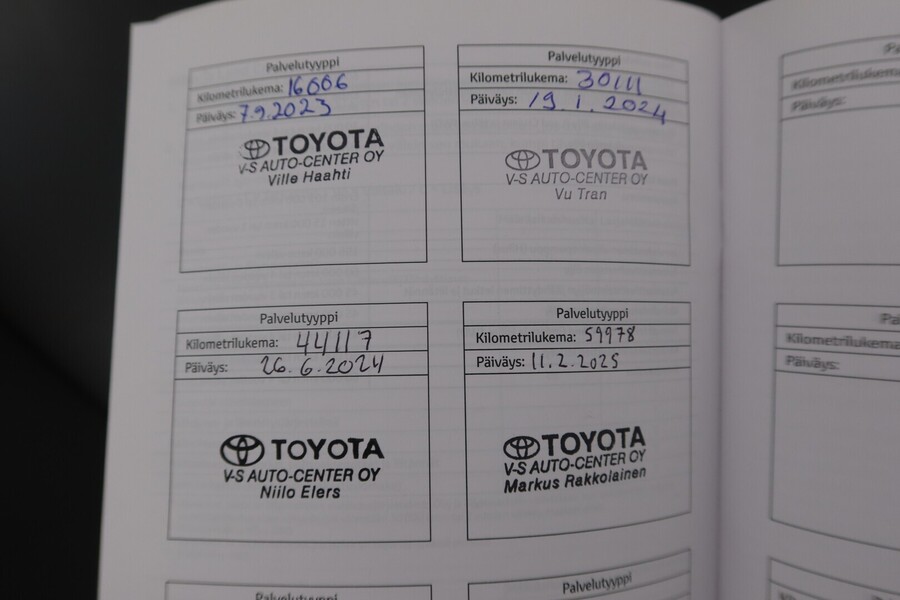 Palvelutyyppi
Kilometrilukema: 16006
Päiväys: 7.9.2023
TOYOTA
V-S AUTO-CENTER OY
Ville Haahti
Palvelutyyppi
Kilometrilukema: 30111
Päiväys: 19.1.2024
TOYOTA
V-S AUTO-CENTER OY
Vu Tran
Palvelutyyppi
Kilometrilukema: 44117
Päiväys: 26.6.2024
TOYOTA
V-S AUTO-CENTER OY
Niilo Elers
Palvelutyyppi
Kilometrilukema: 59978
Päiväys: 11.2.2025
TOYOTA
V-S AUTO-CENTER OY
Markus Rakkolainen
Palvelutyyppi
Palvelutyyppi
Pa
Kilometrilukema
Päiväys:
Pa
Kilometrilukema
Päiväys: